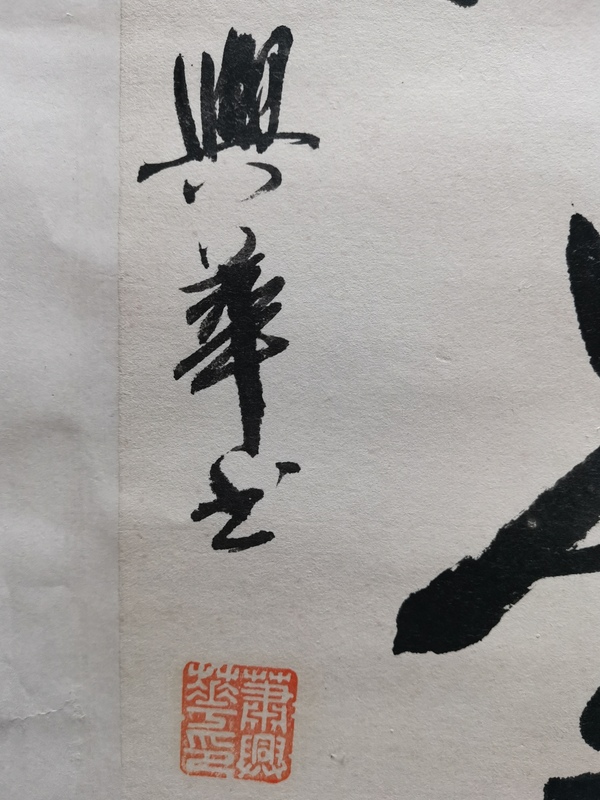 興華书
蕭興
華印